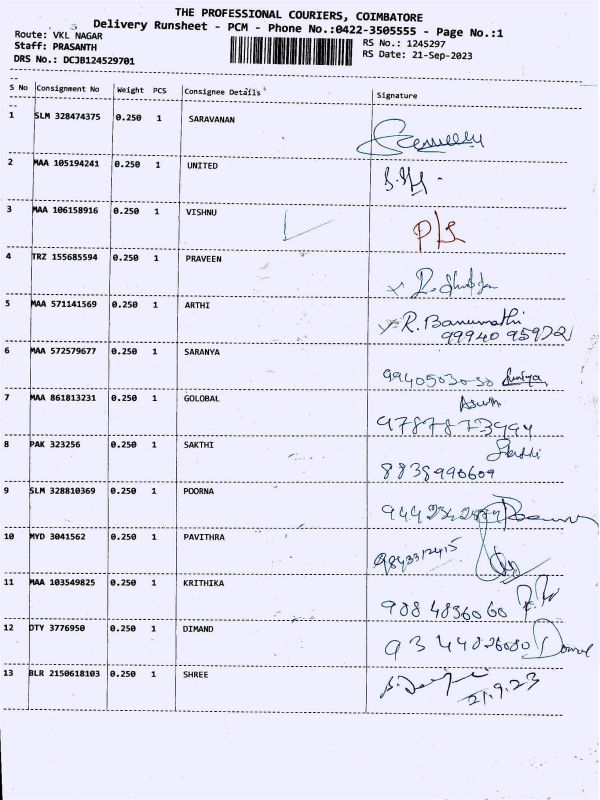 THE PROFESSIONAL COURIERS, COIMBATORE
Delivery Runsheet - PCM - Phone No.:0422-3505555 - Page No.:1
Route: VKL NAGAR
RS No.: 1245297
Staff: PRASANTH
RS Date: 21-Sep-2023
DRS No.: DCJB124529701
S No Consignment No Weight PCS Consignee Details Signature
1 SLM 328474375 0.250 1 SARAVANAN
2 MAA 105194241 0.250 1 UNITED
3 MAA 106158916 0.250 1 VISHNU
4 TRZ 155685594 0.250 1 PRAVEEN
5 MAA 571141569 0.250 1 ARTHI R. Banumathi
99940 95922
6 MAA 572579677 0.250 1 SARANYA
7 MAA 861813231 0.250 1 GOLOBAL
8 PAK 323256 0.250 1 SAKTHI Sakthi
8838990609
9 SLM 328810369 0.250 1 POORNA
10 MYD 3041562 0.250 1 PAVITHRA
9843312415
11 MAA 103549825 0.250 1 KRITHIKA
9084836060
12 DTY 3776950 0.250 1 DIMAND
13 BLR 2150618103 0.250 1 SHREE
21.9.23